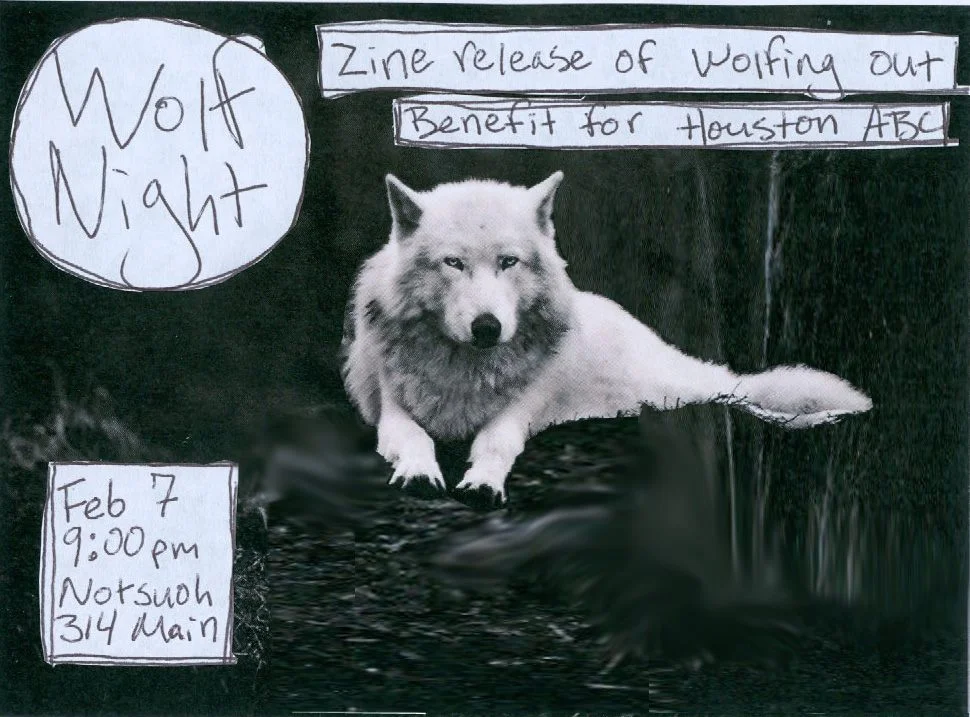 Wolf
Night
Zine release of Wolfing out
Benefit for Houston ABC
Feb 7
9:00pm
Notsuoh
314 Main